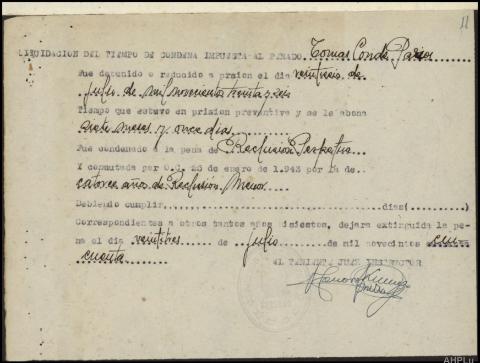 11
LIQUIDACION DEL TIEMPO DE CONDENA IMPUESTA AL PENADO. Tomas Conde
Fue detenido o reducido a prision el dia veintiseis de
julio de mil novecientos treinta y seis
Tiempo que estuvo en prision preventiva y se le abona
siete meses y once dias
Fue condenado a la pena de Reclusion Perpetua
Y conmutada por O.C. 25 de enero de 1.943 por la de
catorce años de Reclusion Menor
Debiendo cumplir dias( )
Correspondientes a otros tantos años bisiestos, dejara extinguida la pe-
na el dia veintitres de julio de mil novecintos cin
cuenta
EL TENIENTE JUEZ INSTRUCTOR
AHPLu